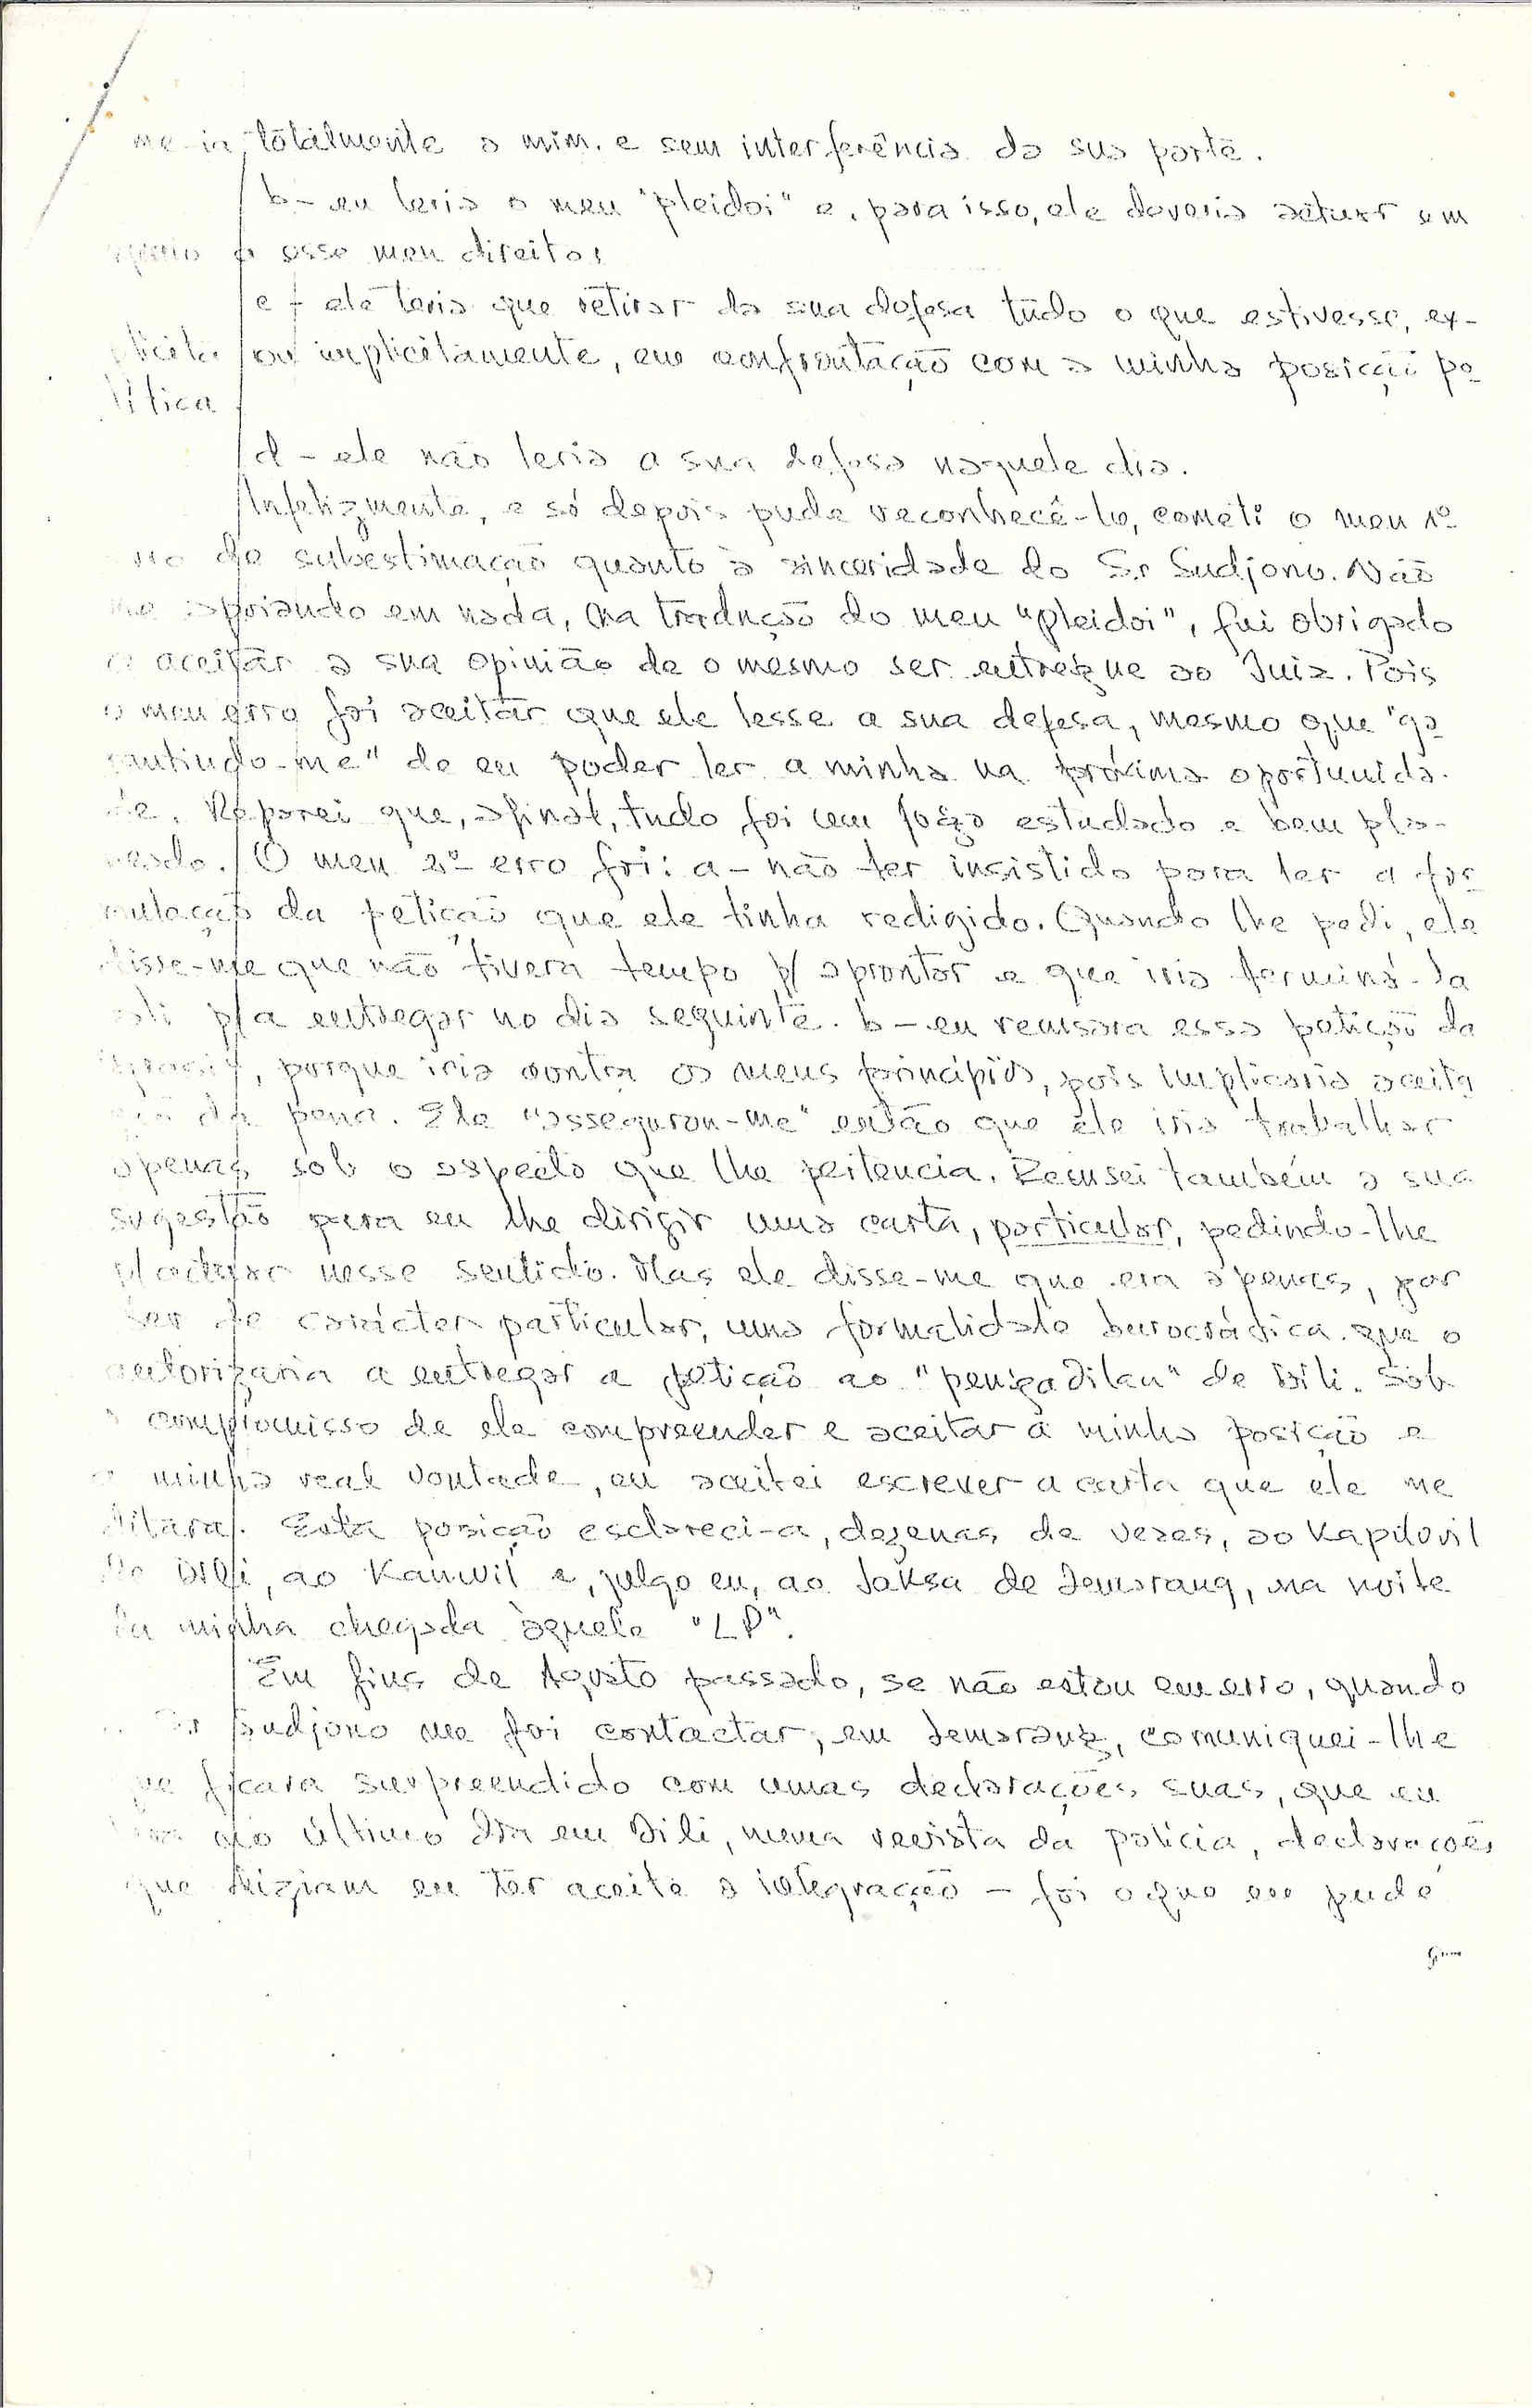 me-ia totalmente a mim. e sem interferência da sua parte.
b- eu leria o meu "pleidoi" e, para isso, ele deveria actuar em
apoio a esse meu direito;
c- ele teria que retirar da sua defesa tudo o que estivesse, ex-
plicita ou implicitamente, em confrontação com a minha posição po-
lítica
d- ele não leria a sua defesa naquele dia.
Infelizmente, e só depois pude reconhecê-lo, cometi o meu 1º
erro de subestimação quanto à sinceridade do Sr Sudjono. Não
me apoiando em nada, na tradução do meu "pleidoi", fui obrigado
a aceitar a sua opinião de o mesmo ser entregue ao Juiz. Pois
o meu erro foi aceitar que ele lesse a sua defesa, mesmo que "ga-
rantindo-me" de eu poder ler a minha na próxima oportunida-
de. Reparei que, afinal, tudo foi um jogo estudado e bem pla-
neado. O meu 2º erro foi: a- não ter insistido para ler a for-
mulação da petição que ele tinha redigido. Quando lhe pedi, ele
disse-me que não tivera tempo p/ aprontar e que iria terminá-la
ali p/a entregar no dia seguinte. b- eu recusara essa petição de
, porque iria contra os meus princípios, pois implicaria aceita
ção da pena. Ele "assegurou-me" então que ele iria trabalhar
apenas sob o aspecto que lhe pertencia. Recusei também a sua
sugestão para eu lhe dirigir uma carta, particular, pedindo-lhe
p/actuar nesse sentido. Mas ele disse-me que era apenas, por
ser de carácter particular, uma formalidade burocrática que o
autorizaria a entregar a petição ao "pengadilan" de Dili. Sob
o compromisso de ele compreender e aceitar a minha posição e
a minha real vontade, eu aceitei escrever a carta que ele me
ditara. Esta posição esclareci-a, dezenas de vezes, ao Kapolwil
de Dili, ao Kanwil e, julgo eu, ao Jaksa de Semarang, na noite
da minha chegada àquela "LP".
Em fins de Agosto passado, se não estou em erro, quando
o Sr Sudjono me foi contactar, em Semarang, comuniquei-lhe
que ficara surpreendido com umas declarações suas, que eu
lera no último dia em Dili, numa revista da polícia, declarações
que diziam eu ter aceite a integração - foi o que eu pude